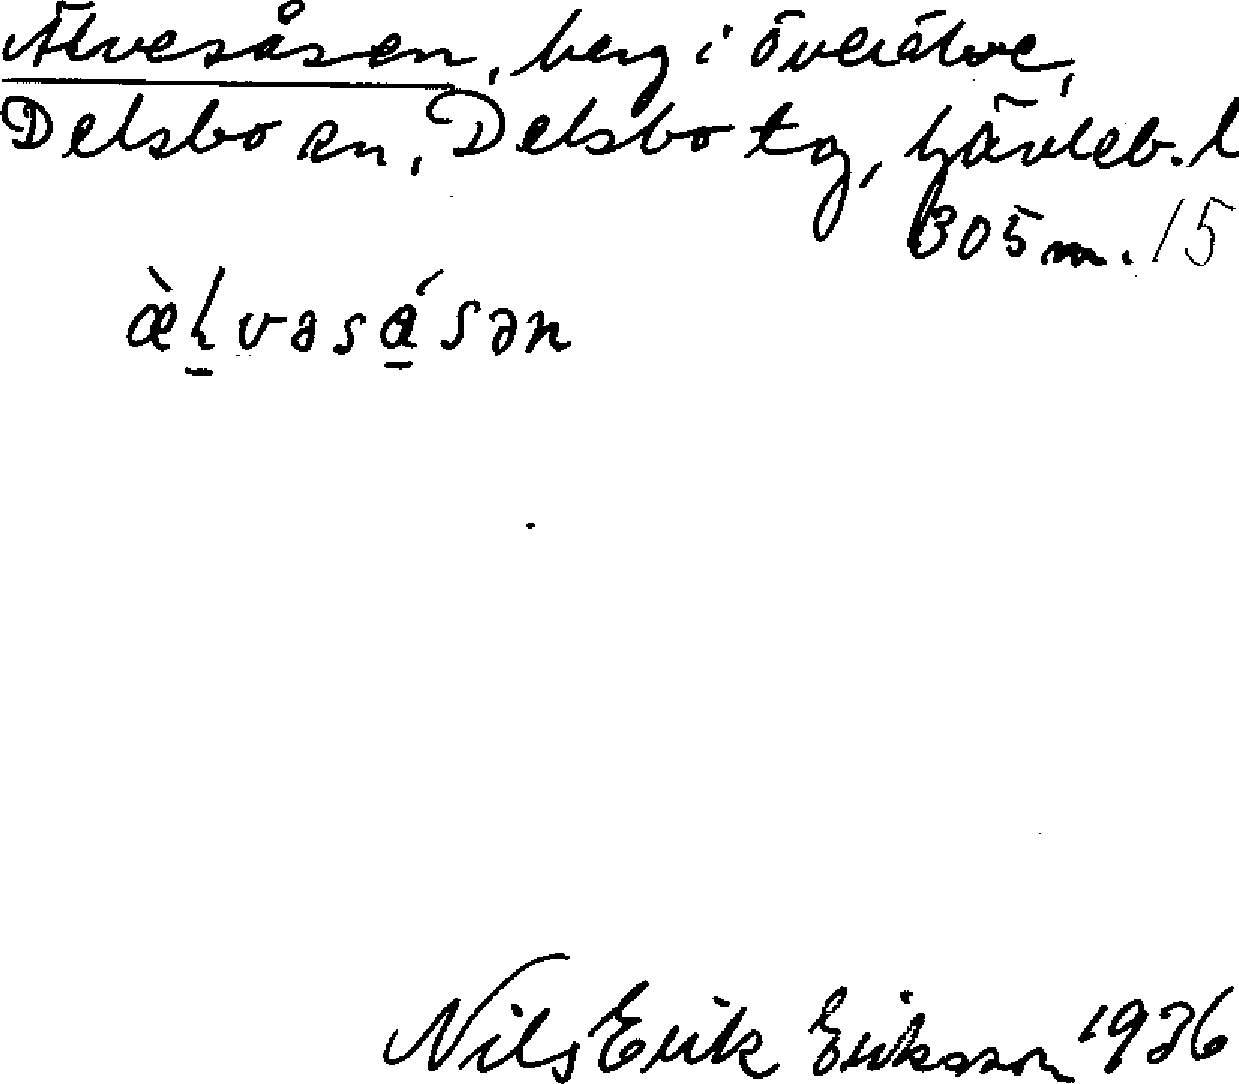 Älvesåsen, berg i Överälve,
Delsbo sn, Delsbo tg, Gävleb. l
305 m. 15
æ̀ḻvəsá̱sən
Nils Erik Eriksson 1936